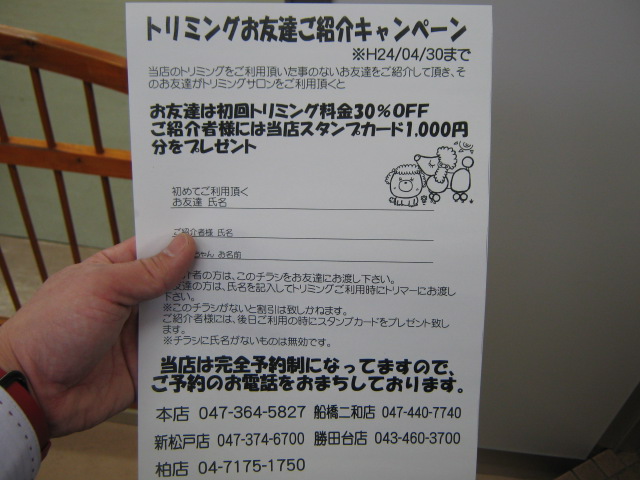 トリミングお友達ご紹介キャンペーン
※H24/04/30まで
当店のトリミングをご利用頂いた事のないお友達をご紹介して頂き、そ
のお友達がトリミングサロンをご利用頂くと
お友達は初回トリミング料金30%OFF
ご紹介者様には当店スタンプカード1,000円
分をプレゼント
初めてご利用頂く
お友達 氏名
ご紹介者様 氏名
ちゃん お名前
介者の方は、このチラシをお友達にお渡し下さい。
友達の方は、氏名を記入してトリミングご利用時にトリマーにお渡し
下さい。
※このチラシがないと割引は致しかねます。
ご紹介者様には、後日ご利用の時にスタンプカードをプレゼント致し
ます。
※チラシに氏名がないものは無効です。
当店は完全予約制になってますので、
ご予約のお電話をおまちしております。
本店 047-364-5827 船橋二和店 047-440-7740
新松戸店 047-374-6700 勝田台店 043-460-3700
柏店 04-7175-1750